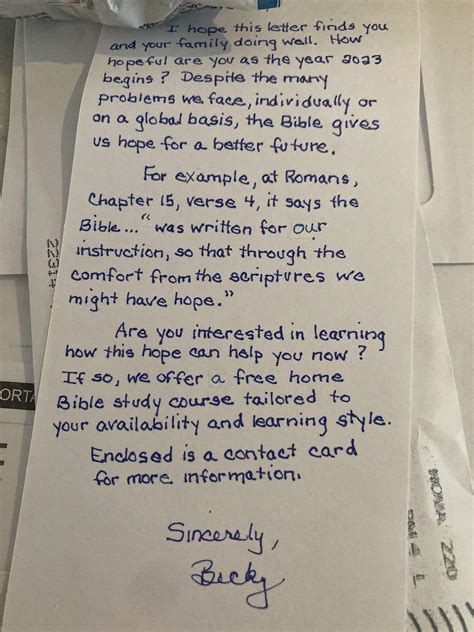 I hope this letter finds you
and your family doing well. How
hopeful are you as the year 2023
begins? Despite the many
problems we face, individually or
on a global basis, the Bible gives
us hope for a better future.
For example, at Romans,
Chapter 15, verse 4, it says the
Bible... "was written for our
instruction, so that through the
comfort from the scriptures we
might have hope."
Are you interested in learning
how this hope can help you now?
If so, we offer a free home
Bible study course tailored to
your availability and learning style.
Enclosed is a contact card
for more information.
Sincerely,
Becky
22314
ORTA